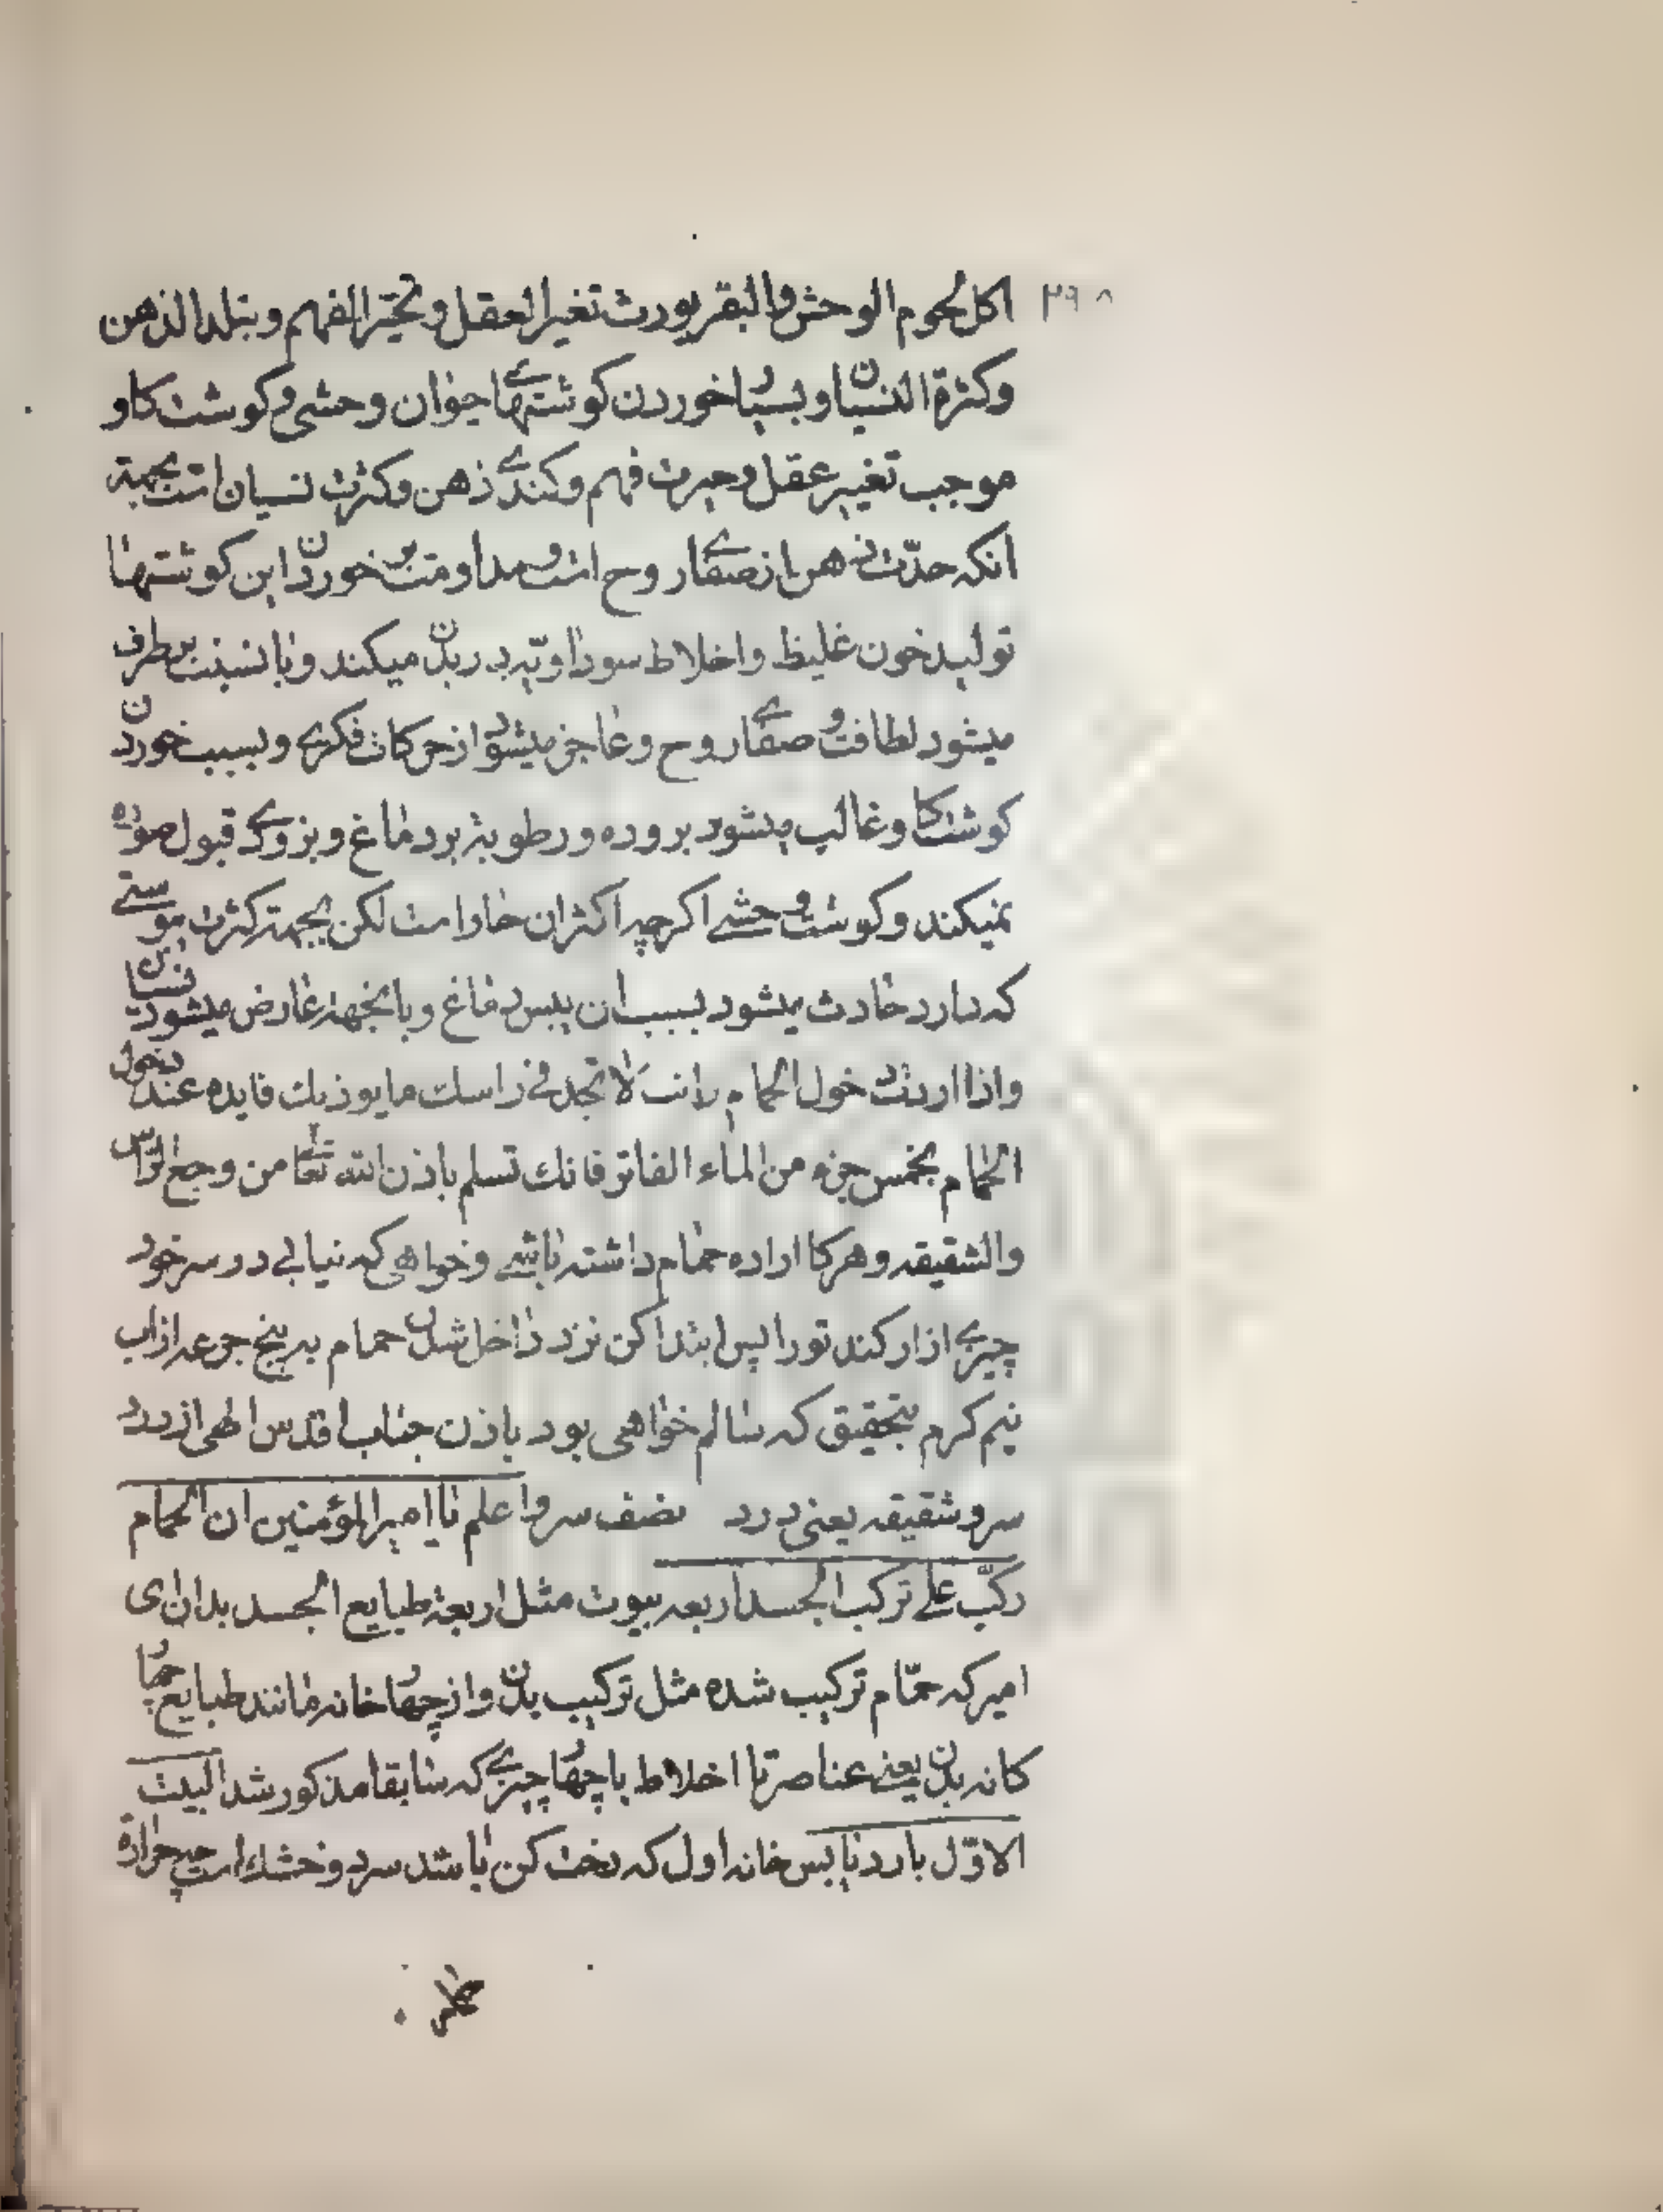 ۳۹۸
اکل لحوم الوحش والبقر یورث تغیر العقل و تحیّر الفهم و تبلد الذهن
وکثرة النسیان و بسیار خوردن کوشتهای حیوان وحشی و کوشت کاو
موجب تغییر عقل و حیرت فهم و کندی ذهن و کثرت نسیان است بجهة
انکه حدّت ذهن از صفای روح است و مداومت بر خوردن این کوشتها
تولید خون غلیظ و اخلاط سوداویّه در بدن میکند و بانسبت برطرف
میشود لطافت و صفای روح و عاجز میشود از حرکات فکری و بسبب خوردن
کوشت کاو غالب میشود بروده و رطوبة بر دماغ و بزودی قبول صوره
نمیکند و کوشت وحشی اکرچه اکثر ان حار است لکن بجهة کثرت یبوستی
که دارد حادث میشود بسبب ان یبس دماغ و باینجهة عارض میشود نسیان
واذا اردت دخول الحمام وانت لا تجد فی راسک ما یوذیک فابده عند دخول
الحمام بخمس جزء من الماء الفاتر فانک تسلم باذن الله تعا من وجع الراس
والشقیقه و هرکاه اراده حمام داشته باشی و خواهی که نیابی در سر خود
چیزی ازار کند تو را پس ابتدا کن نزد داخل شدن حمام به پنج جرعه از اب
نیم کرم بتحقیق که سالم خواهی بود باذن جناب اقدس الهی از درد
سر و شقیقه یعنی درد نصف سر واعلم یا امیر المؤمنین ان الحمام
رکّب علی ترکب الجسد اربعه بیوت مثل اربعة طبایع الجسد بدان ای
امیر که حمّام ترکیب شده مثل ترکیب بدن و از چهار خانه مانند طبایع چهار
کانه بدن یعنی عناصر یا اخلاط یا چهار چیزی که سابقا مذکور شد البیت
الاوّل بارد یابس خانه اول که رخت کن باشد سرد و خشک است چه حرارة